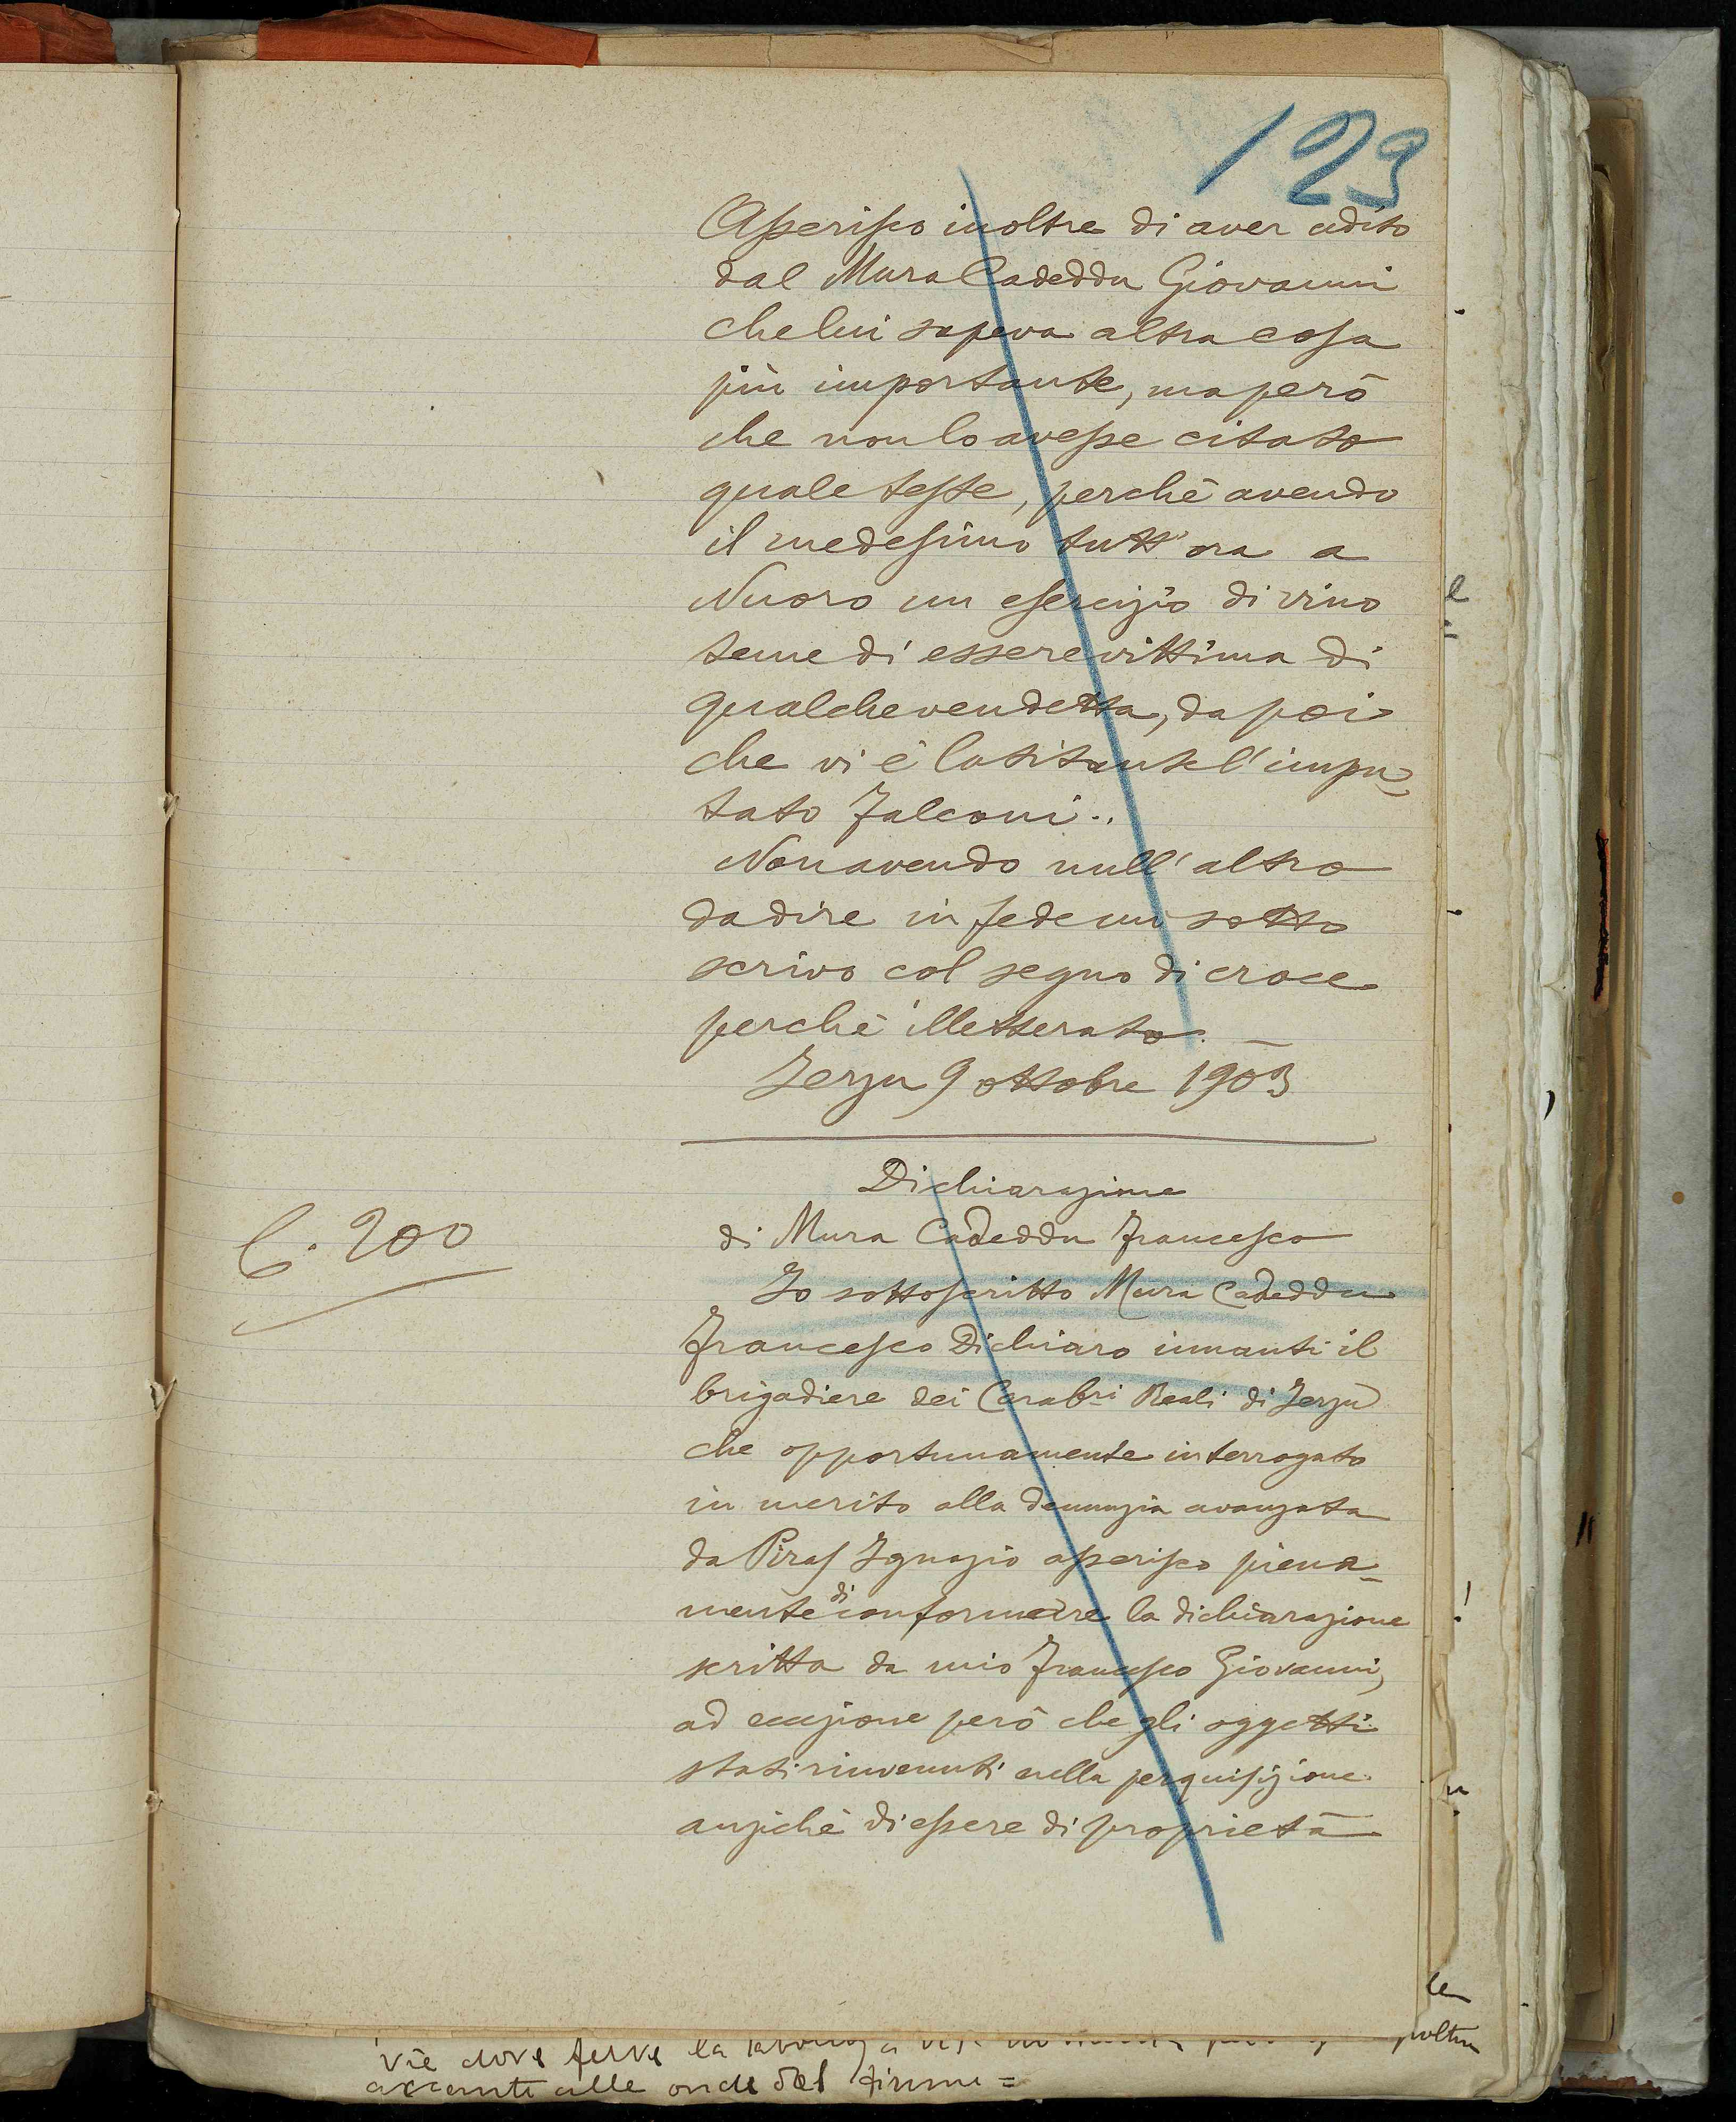 123
Asserisco inoltre di aver udito
dal Mura Cadeddu Giovanni
che lui sapeva altra cosa
più importante, ma però
che non lo avesse citato
quale teste, perchè avendo
il medesimo tutt'ora a
Nuoro un esercizio di vino
teme di essere vittima di
qualche vendetta, da poi
che vi è latitante l'impu=
tato Falconi..
Non avendo null'altro
da dire in fede mi sotto
scrivo col segno di croce
perchè illetterato. —
Jerzu 9 ottobre 1903
Dichiarazione
di Mura Cadeddu Francesco
C. 200
Io sottoscritto Mura Cadeddu
Francesco Dichiaro innanti il
brigadiere dei Carabri Reali di Jerzu
che opportunamente interrogato
in merito alla denunzia avanzata
da Piras Ignazio asserisco piena=
mente di conformare la dichiarazione
scritta da mio Francesco Giovanni,
ad eccezione però che gli oggetti
stati rinvenuti nella perquisizione
anzichè di essere di proprietà